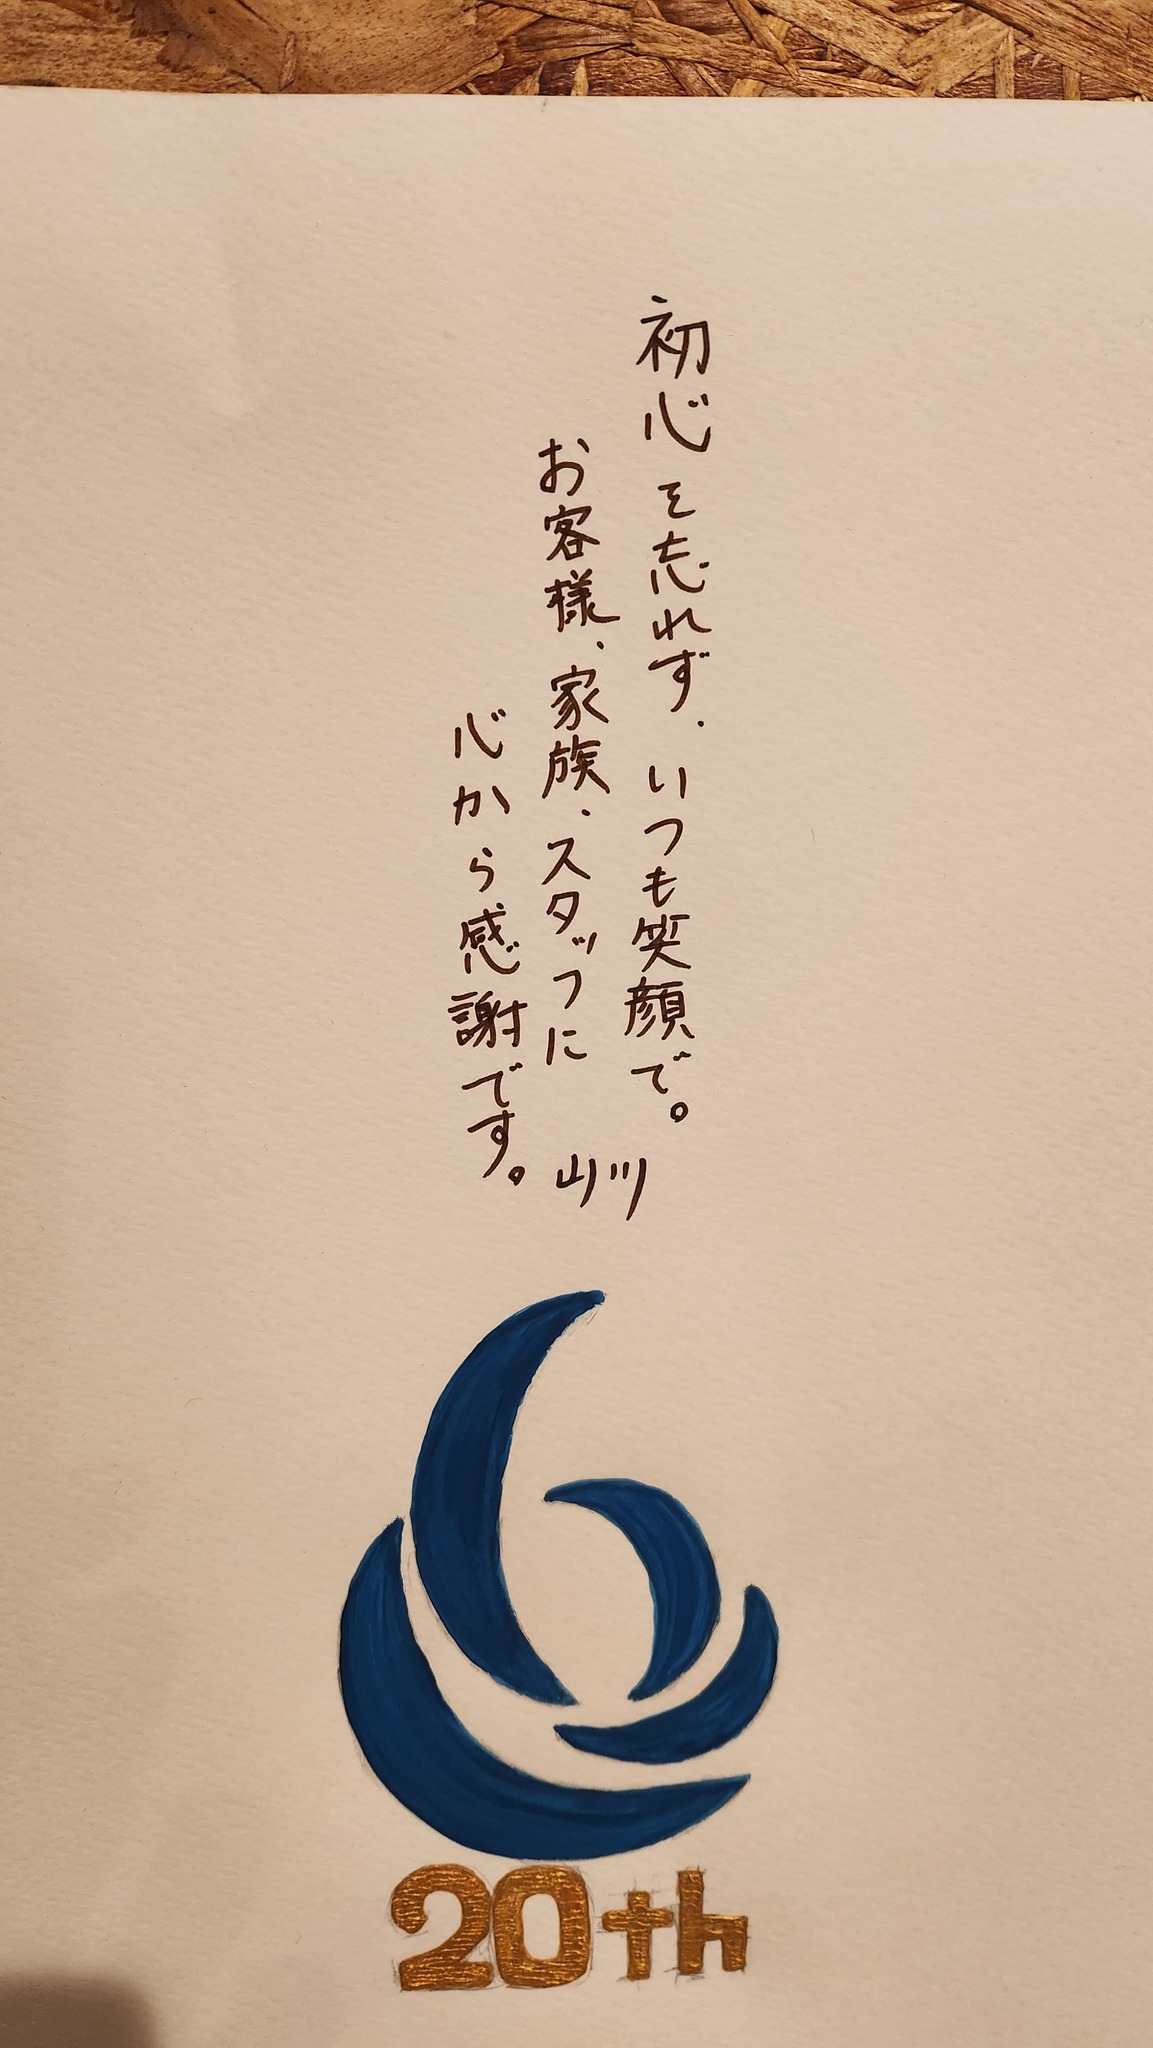 初心を忘れず、いつも笑顔で。
お客様、家族、スタッフに
心から感謝です。
山川
20th